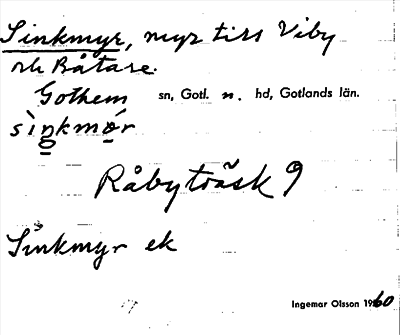 Sinkmyr, myr till Viby
och Båtare.
Gothem sn, Gotl. n. hd, Gotlands län.
sìnkmør
Råbyträsk 9
Sinkmyr ek
Ingemar Olsson 1960